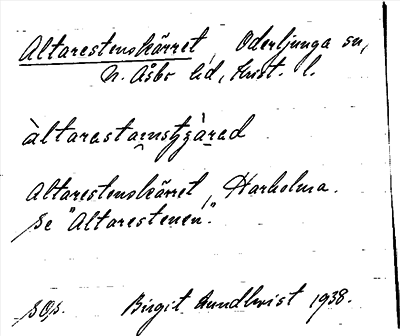 Altarestenskärret, Oderljunga sn,
N. Åsbo hd, Krist. l.
àltarastæ̀nstʒæ̀rəd
Altarestenskärret, Harholma.
Se "Altarestenen".
sOs. Birgit Rundkvist 1938.